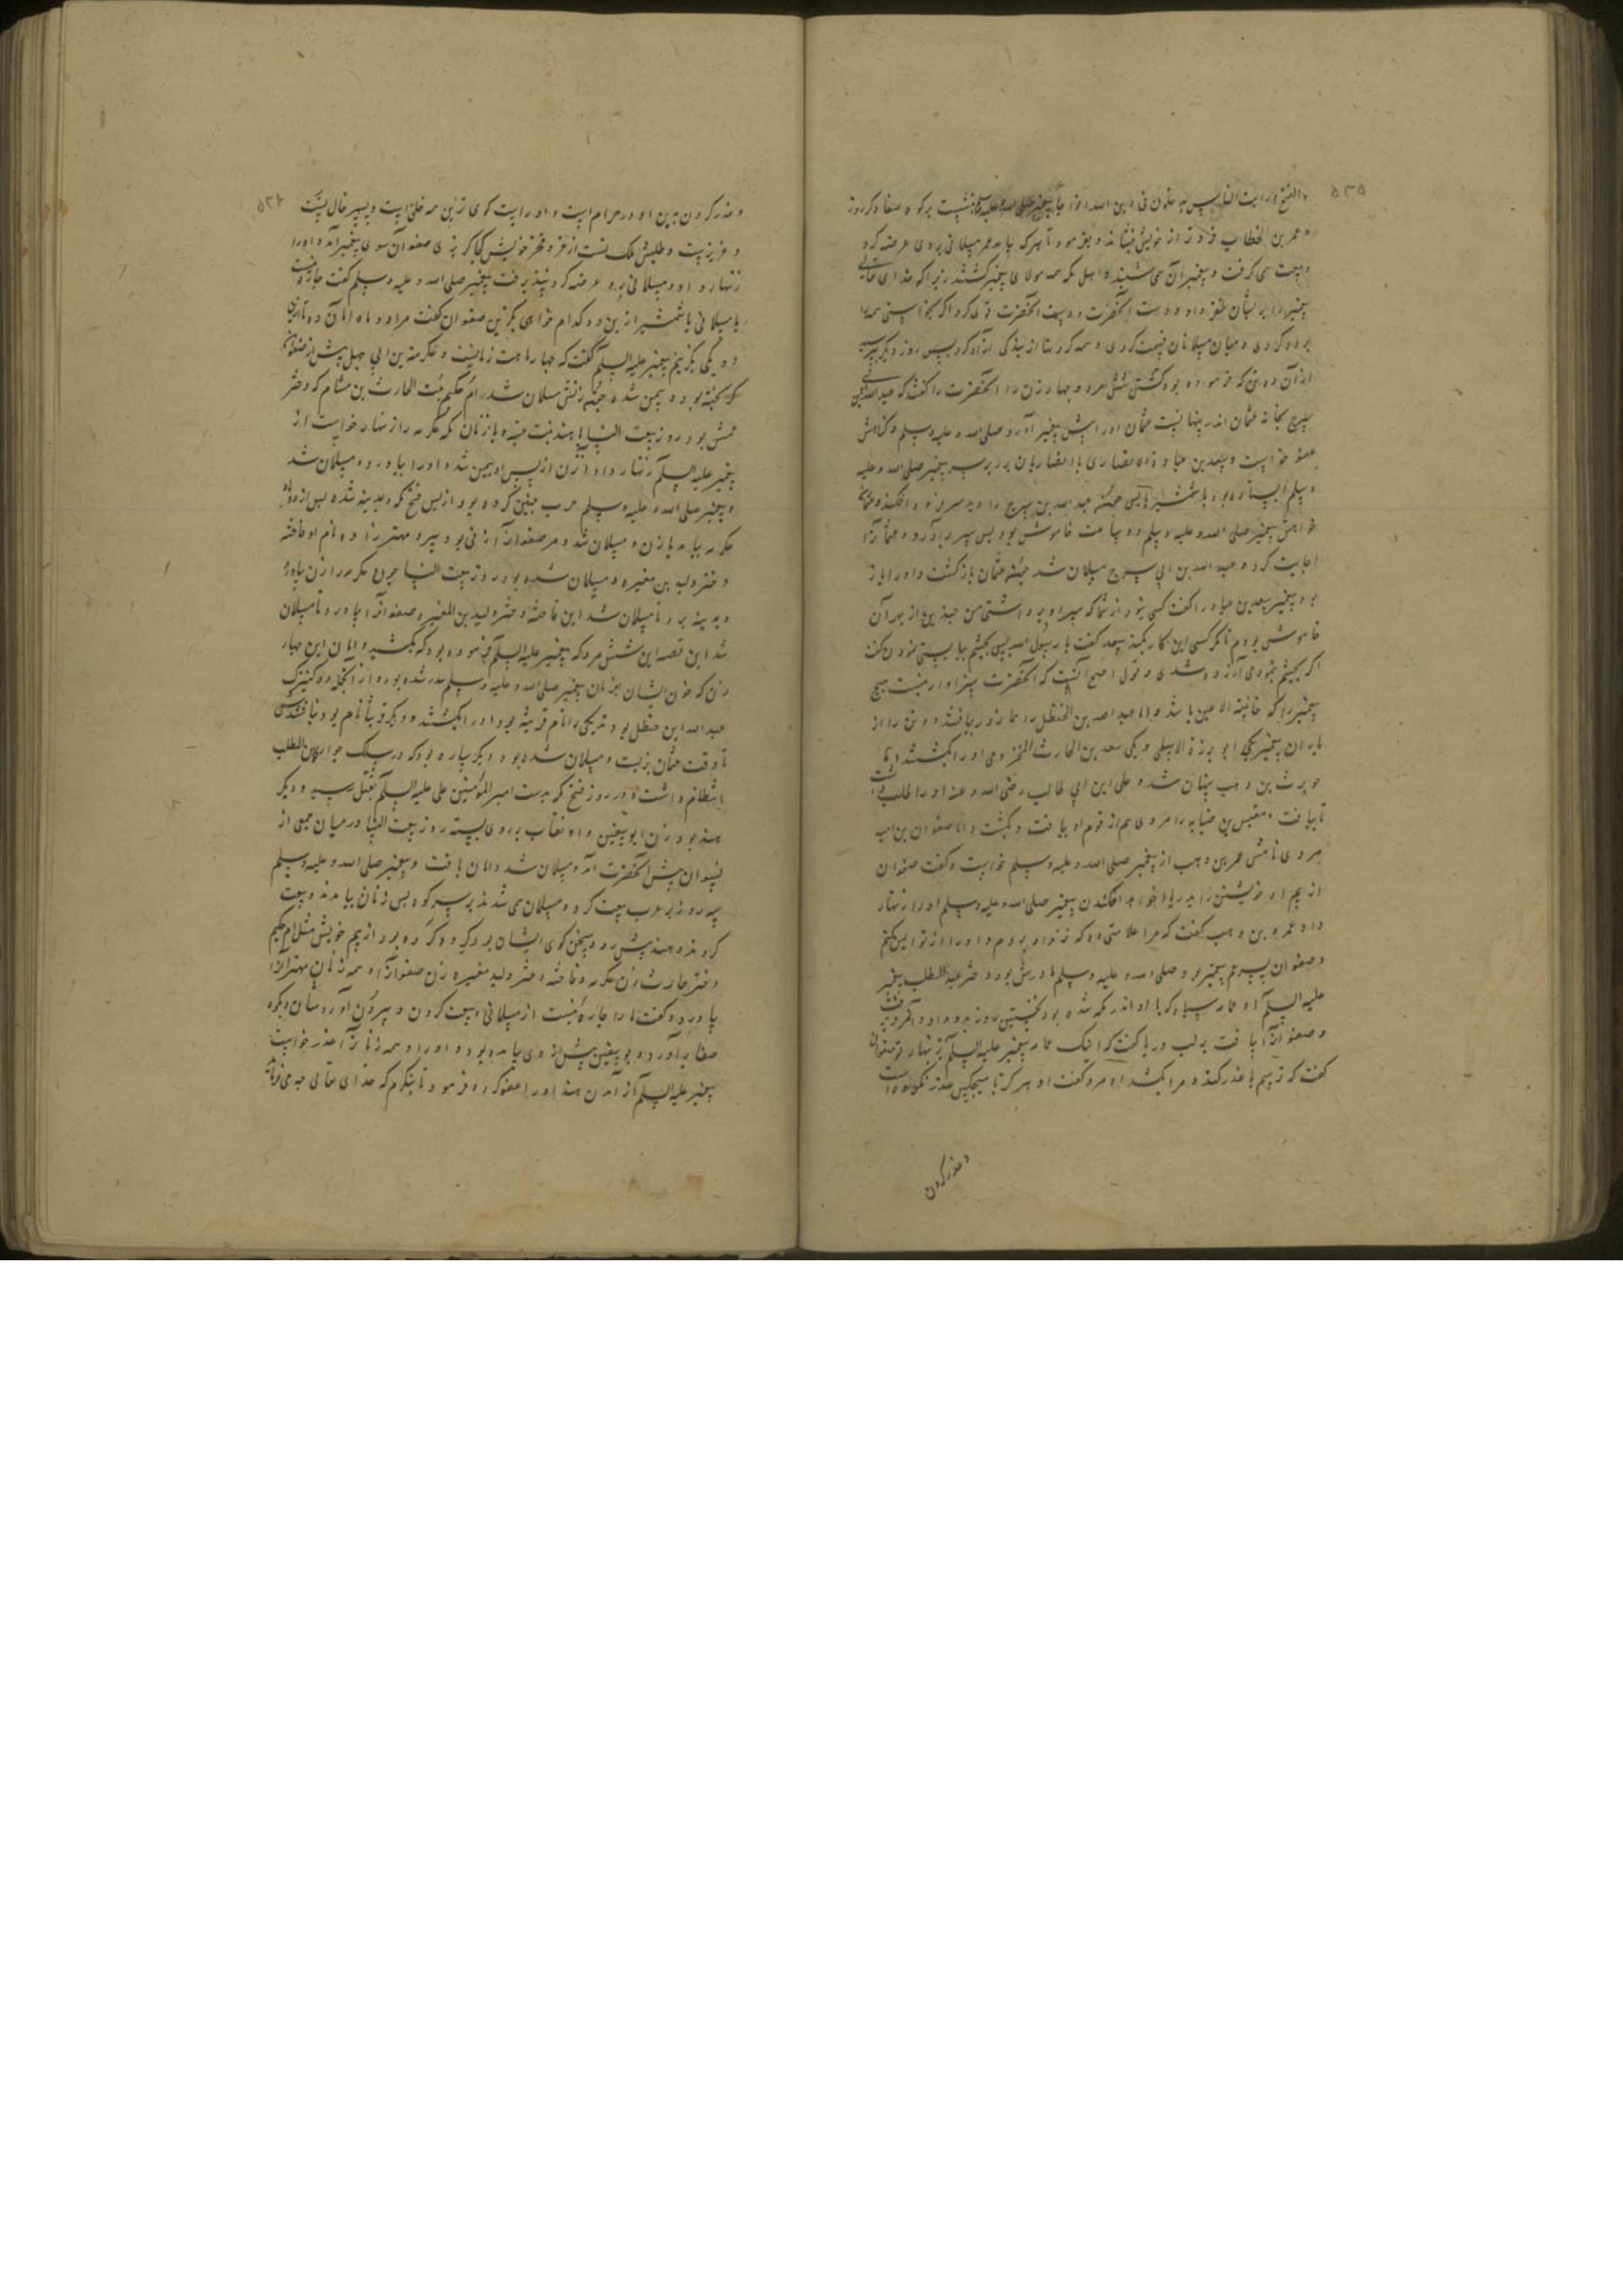 ۵۳۵
والفتح ورایت الناس یدخلون فی دین الله افواجا پیغمبر صلی الله علیه وسلم بنشست برکوه صفا دکر روز
و عمر بن الخطاب فروتر از خویش بنشاند و بفرمود تا هرکه بیامد عمر مسلمانی بروی عرضه کرد
و بیعت می کرفت و پیغمبر آن می شنید و اهل مکه همه مولای پیغمبر کشتند زیراکه خدای تعالی
پیغمبر را بر ایشان ظفر داد و دست آنحضرت قوی کرد اکر خواستی همه را
برده کردی و میان مسلمانان قسمت کردی و همه کردنها از بندکی آزاد کرد پس روز دیکر
از آن ده تن که فرموده بود کشتن شش مرد و چهار زن را آنحضرت را کفتند که عبدالله بن ابی
سرح بخانه عثمان اندر پنهانست عثمان او را پیش پیغمبر آورد صلی الله علیه وسلم و کناهش
عفو خواست و سعد بن عباده الانصاری با انصاریان بر سر پیغمبر صلی الله علیه
وسلم ایستاده بود با شمشیرها پس عبد الله بن سرح را دید سر فرو افکند و
خواهش پیغمبر صلی الله علیه وسلم دو ساعت خاموش بود پس سر برآورد و عثمانرا
اجابت کرد و عبد الله بن ابی سرح مسلمان شد عثمان بازکشت و او را باز
برد پیغمبر سعد بن عباده را کفت کسی نبود از شما که سر او برداشتی من چندین از بهر آن
خاموش بودم تا مکر کسی این کار بکند سعد کفت یا رسول الله پس بچشم ببایستی نمودن کفت
اکر بچشم نمودی آزرده شدی و قول اصح آنست که آنحضرت سزاوار نیست هیچ
پیغمبر را که خائنة الاعین باشد و اما عبد الله بن الخنظل را نماز دریافتند و دو تن را از
یاران پیغمبر یکی ابو برزة الاسلمی و یکی سعد بن الحارث المخزومی او را بکشتند و اما
حویرث بن وهب پنهان شد و علی ابن ابی طالب رضی الله عنه او را طلب داشت
تا بیافت و مقیس بن ضبابه را مردی هم از قوم او یافت و بکشت و اما صفوان بن امیه
مردی نامش عمر بن وهب از پیغمبر صلی الله علیه وسلم خواست و کفت صفوان
از بیم او خویشتن را بدریا خواهد افکندن پیغمبر صلی الله علیه وسلم او را زنهار
داد عمر بن وهب کفت که مرا علامتی ده که نزد او بروم و او را از تو ایمن کنم
و صفوان پسر عم پیغمبر بود صلی الله علیه وسلم مادرش بود دختر عبد المطلب پیغمبر
علیه السلام آن عمامه سیاه که با او اندر مکه شده بود نخستین روز بدو داد و آن مرد برفت
و صفوانرا یافت بر لب دریا کفت که اینک عمامه پیغمبر علیه السلام بزنهار تو صفوان
کفت که ترسم با غدر کند و مرا بکشد آن مرد کفت او هرکز با هیچکس غدر نکرده است
و غدر کردن
۵۳۶
و غدر کردن بدین او در حرام است و او راست کوی ترین همه خلق است و پسر خال تست
و عزیزست و طلبش ملک تست از عز و فخر خویش کجا کریزی صفوان سوی پیغمبر آمد و او را
زنهار داد و مسلمانی برو عرضه کرد نپذیرفت پیغمبر صلی الله علیه وسلم کفت چاره نیست
یا مسلمانی یا شمشیر ازین دو کدام خواهی بکزین صفوان کفت مرا دو ماه امان ده تا ازین
دو یکی بکزینم پیغمبر علیه السلام کفت که چهار ماهت زمانست و عکرمه بن ابی جهل پیش از صفوان
کریخته بود و بیمن شده زنش مسلمان شد ام حکیم بنت الحارث بن هشام که دختر
عمش بود و روز بیعت النسا با هند بنت عتبه و با زنان مکه عکرمه را زنهار خواست از
پیغمبر علیه السلام زنهار داد و آن زن از پس او بیمن شد و او را بیاورد و مسلمان شد
و پیغمبر صلی الله علیه وسلم حرب حنین کرده بود از پس فتح مکه و بمدینه شده پس از دو ماه
عکرمه بیامد با زن و مسلمان شد و مر صفوانرا زنی بود پیر و مهتر زاده نام او فاخته
دختر ولید بن مغیره و مسلمان شده بود روز بیعت النسا چون عکرمه را زن بیاورد
و بمدینه برد تا مسلمان شد این فاخته دختر ولید بن المغیره صفوانرا بیاورد تا مسلمان
شد این قصه این شش مرد که پیغمبر علیه السلام فرموده بود که بکشید و اما آن این چهار
زن که خون ایشان بفرمان پیغمبر صلی الله علیه وسلم هدر شده بود از آنجمله دو کنیزک
عبد الله ابن حنظل بود یکی را نام قریبه بود او را بکشتند و دیکر قرتنا نام بود نیافتندش
تا وقت عثمان بزیست و مسلمان شده بود و دیکر ساره بود که در سلک جواری بنی المطلب
انتظام داشت و در روز فتح مکه بدست امیر المؤمنین علی علیه السلام بقتل رسید و دیکر
هند بود زن ابو سفین و آن نقاب بروی بسته روز بیعت النسا در میان جمعی از
نسوان پیش آنحضرت آمد و مسلمان شد و امان یافت و پیغمبر صلی الله علیه وسلم
سه روز بر عرب بیعت کرد و مسلمان می شدند بر سر کوه پس زنان بیامدند و بیعت
کردند و هند پیش رو و سخن کوی ایشان بود کرده بود از بیم خویش مثل ام حکیم
دختر حارث زن عکرمه و فاخته دختر ولید مغیره زن صفوان و همه زنان مهترانرا
بیاورد و کفت ما را چاره نیست از مسلمانی و بیعت کردن و بیرون آوردشان و بکوه
صفا برآورد و بو سفین پیش از وی بیامده بود و او را و همه زنانرا عذر خواست
پیغمبر علیه السلام از آمدن هند او را عفو کرد و فرمود تا بنکرم که خدای تعالی چه می فرماید